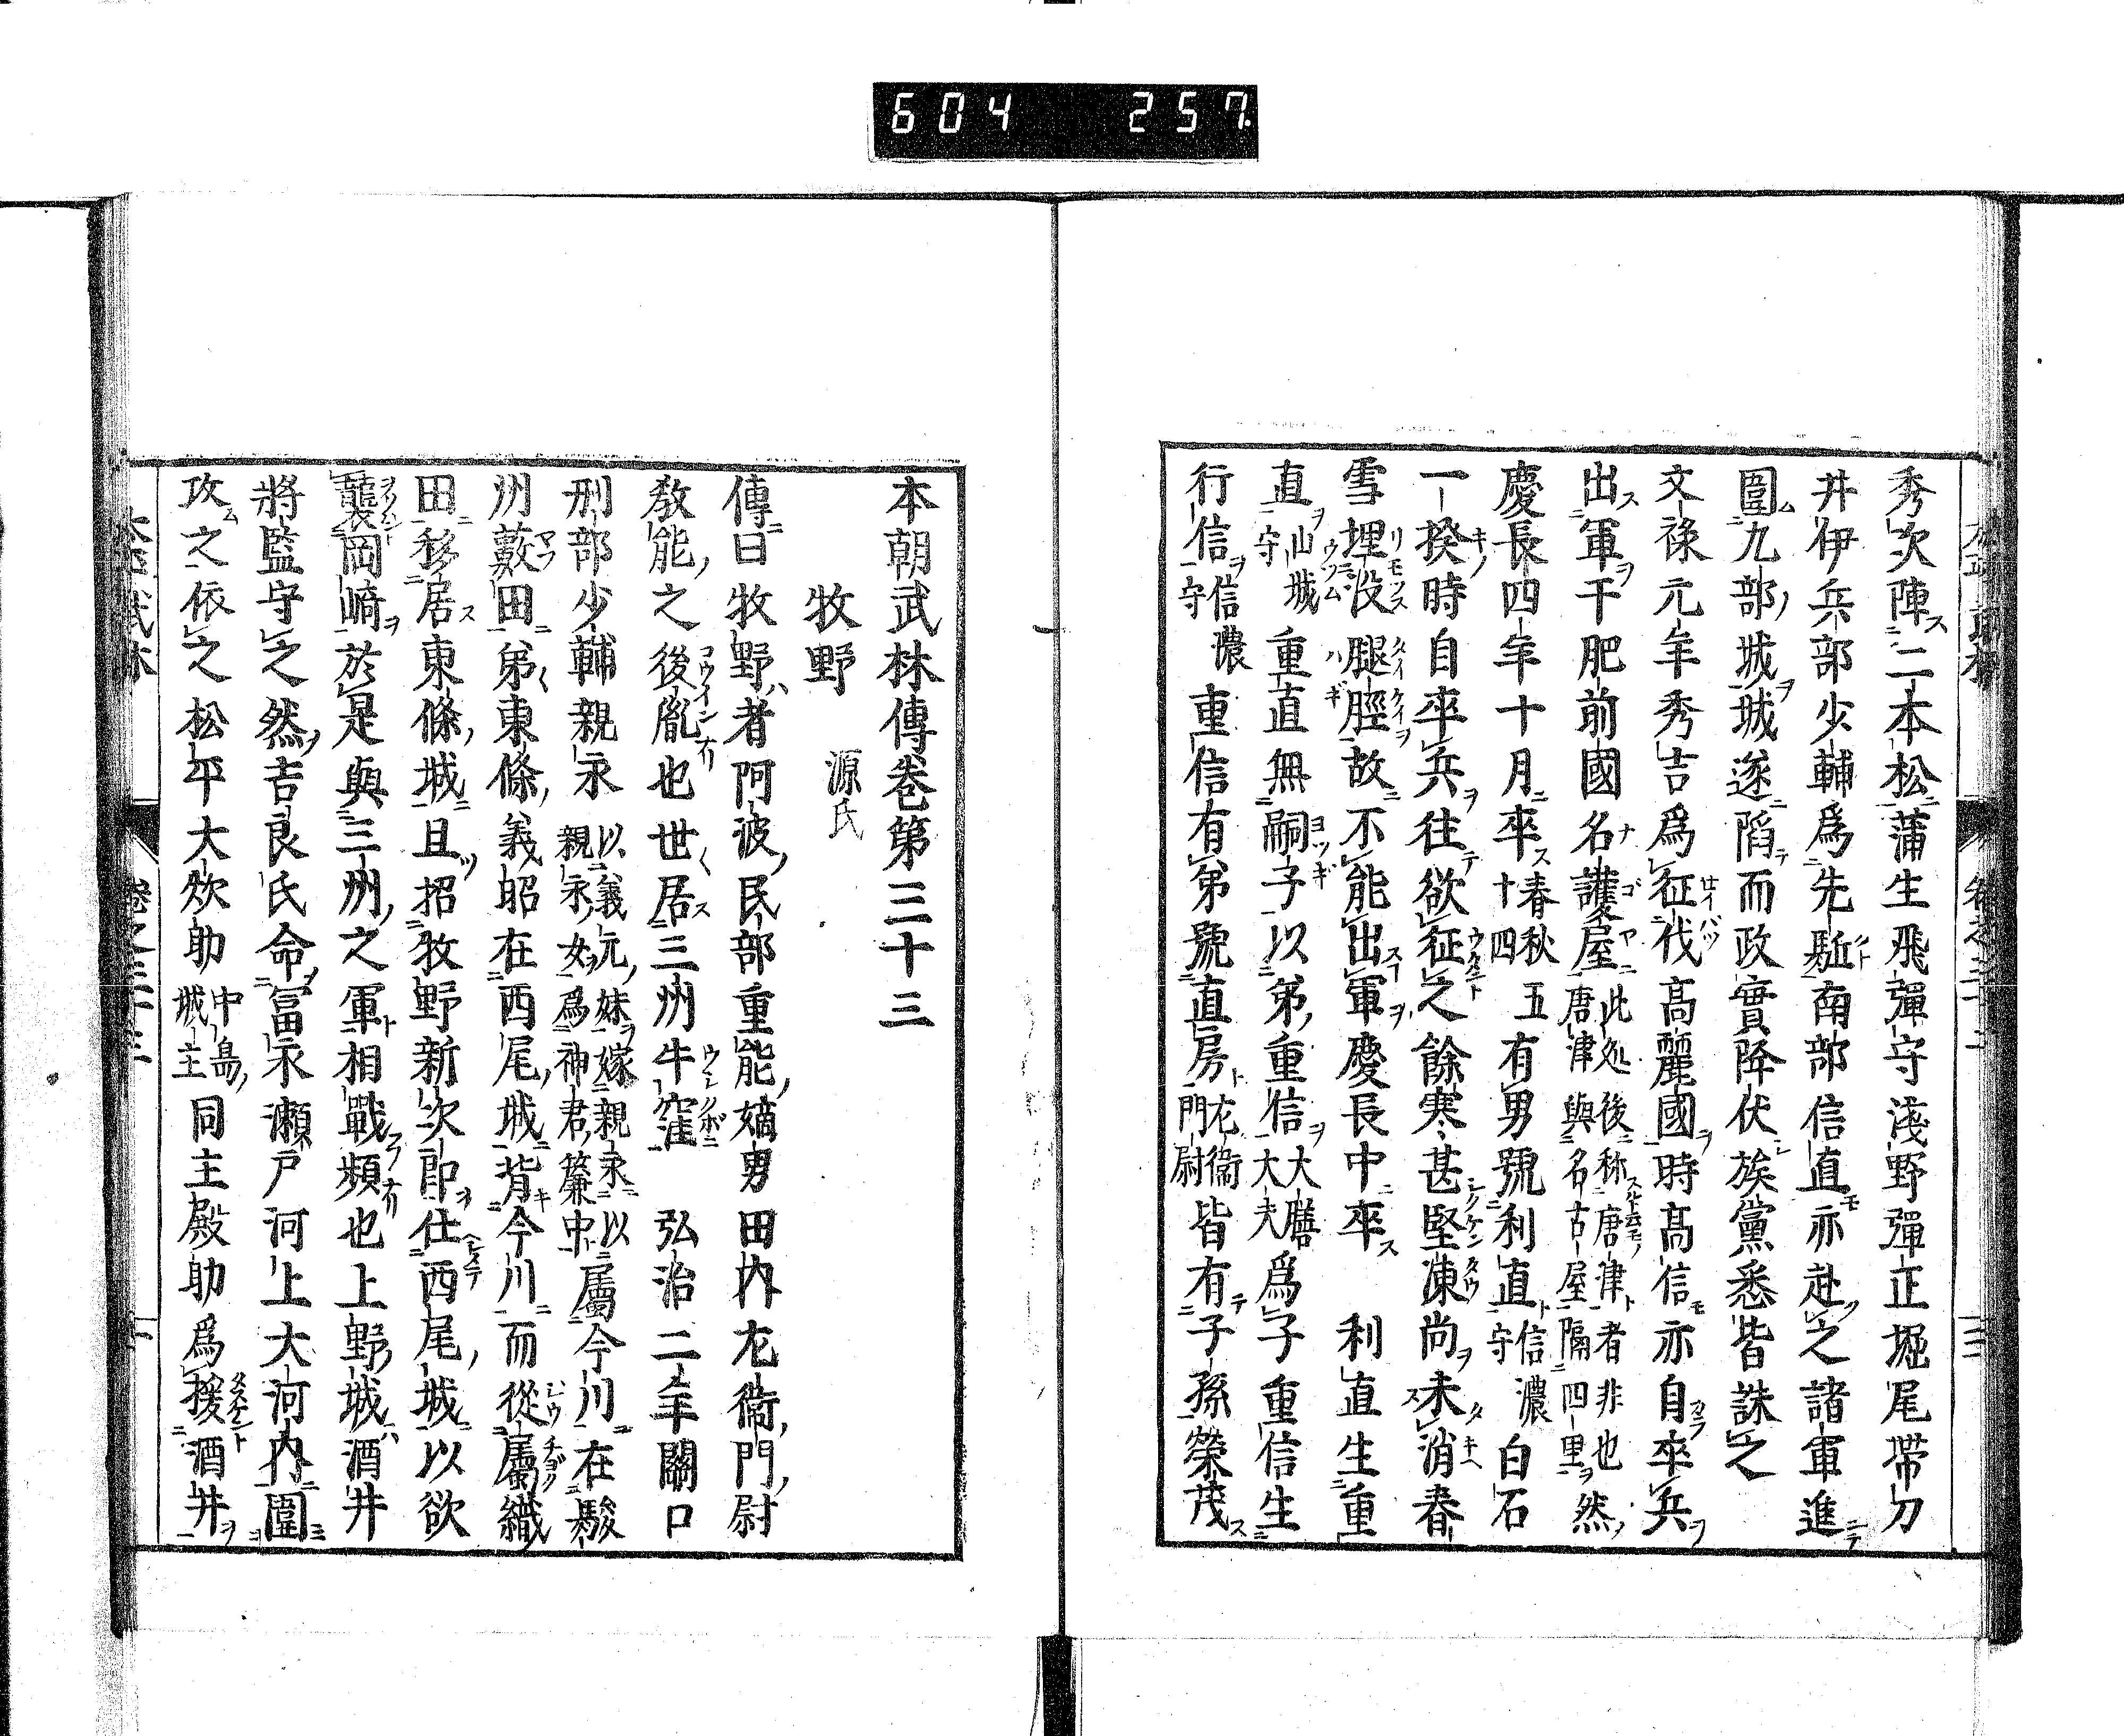 604 257
秀次陣二本松蒲生飛彈守淺野彈正堀尾帶刀
井伊兵部少輔爲先駈南部信直亦赴之諸軍進
圍九部城城遂陷而政實降伏族黨悉皆誅之
文祿元年秀吉爲征伐高麗國時高信亦自卒兵
出軍于肥前國名護屋此処後称唐津者非也唐津與名古屋隔四里然
慶長四年十月卒春秋五十四有男號利直信濃守白石
一揆時自卒兵往欲征之餘寒甚堅凍尚未消春
雪埋没腿脛故不能出軍慶長中卒 利直生重
直山城守重直無嗣子以弟重信大膳大夫爲子重信生
行信信濃守重信有弟號直房左衞門尉皆有子孫榮茂
本朝武林傳卷第三十三
牧野 源氏
傳曰牧野者阿波民部重能嫡男田内左衞門尉
敎能之後胤也世居三州牛窪 弘治二年關口
刑部少輔親永以義元妹嫁親永以親永女爲神君簾中屬今川在駿
州藪田弟東條義昭在西尾城背今川而從屬織
田移居東條城且招牧野新次郎仕西尾城以欲
襲岡崎於是與三州之軍相戰頻也上野城酒井
將監守之然吉良氏命冨永瀬戸河上大河内圍
攻之依之松平大炊助中島城主同主殿助爲援酒井